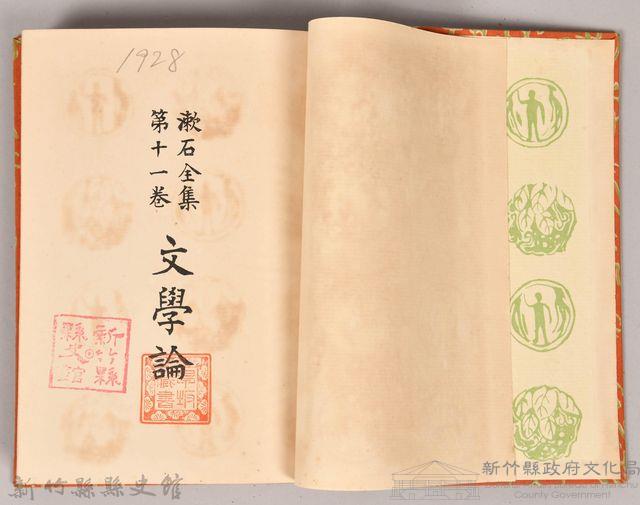 1928
漱石全集
第十一卷
文學論
新竹縣
縣史館
藏書
新竹縣縣史館
新竹縣政府文化局
County Government